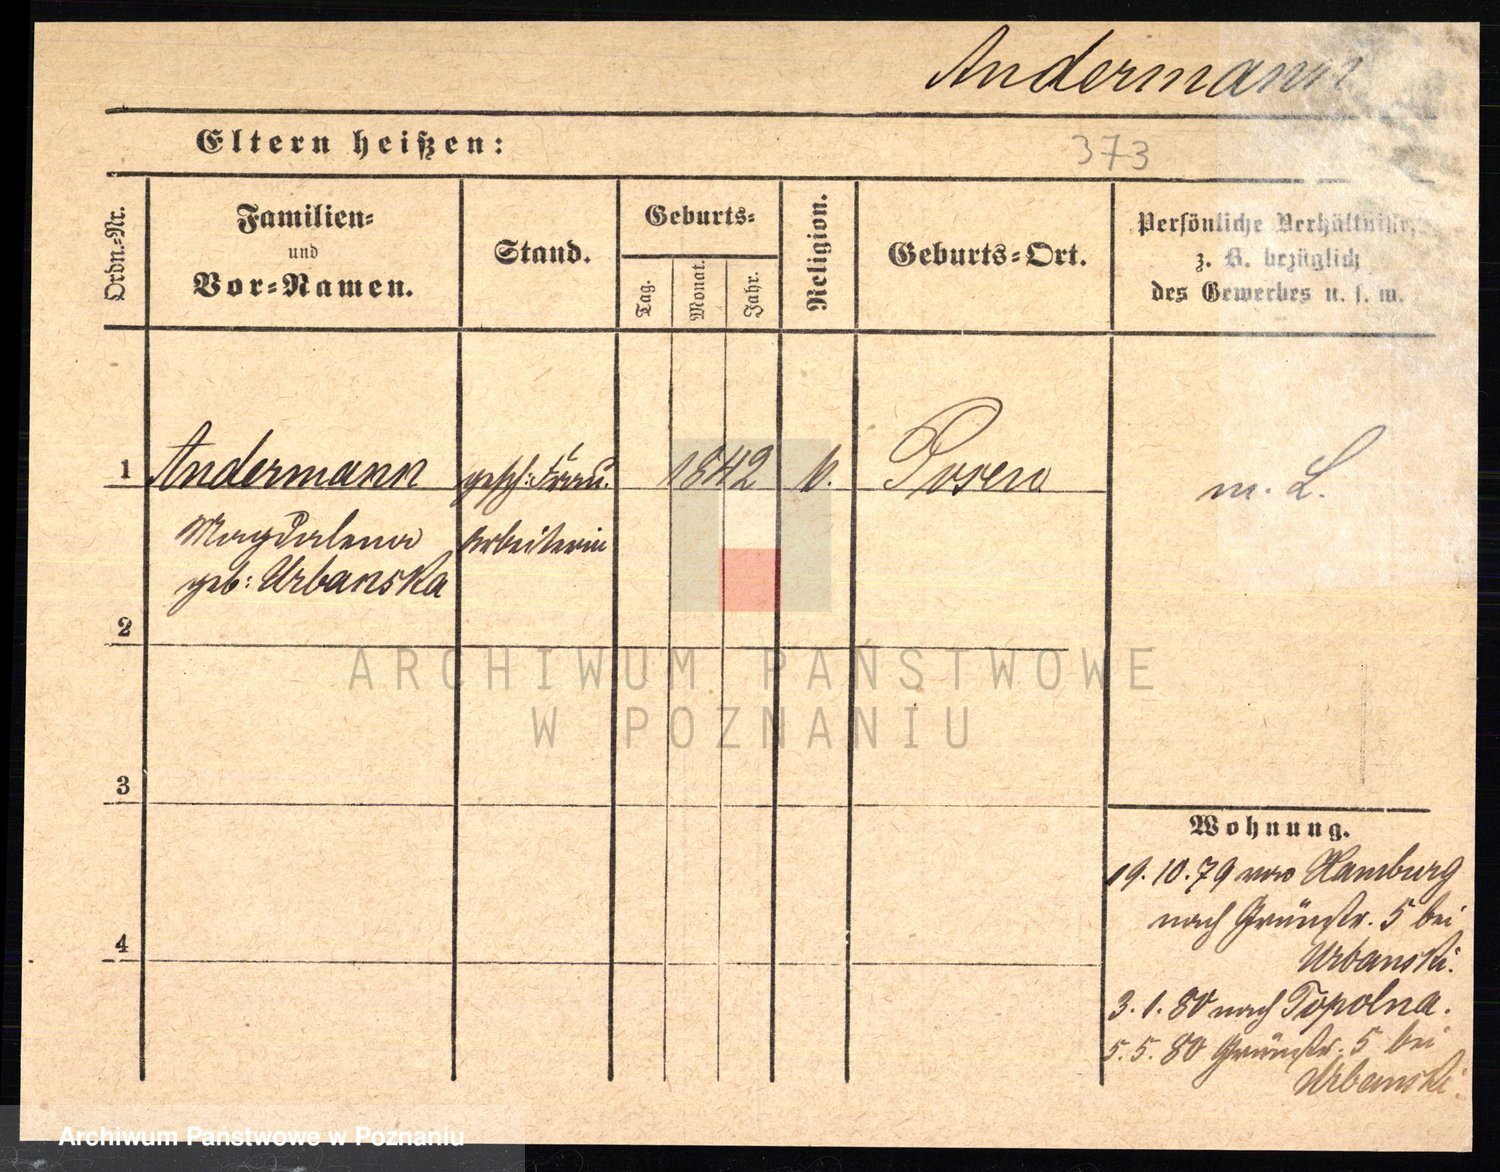 Andermann
Eltern heißen:
373
Ordn.=Nr.
Familien=
und
Vor=Namen.
Stand.
Geburts=
Tag.
Monat.
Jahr.
Religion.
Geburts=Ort.
Persönliche Verhältnisse,
z. B. bezüglich
des Gewerbes u. s. w.
1 Andermann gesch: Frau. 1842 k. Posen m. L.
Magdalena Arbeiterin
geb: Urbanska
2
ARCHIWUM PAŃSTWOWE
W POZNANIU
3
Wohnung.
19.10.79 von Hamburg
nach Grünstr. 5 bei
Urbanski.
4
3.1.80 nach Topolna.
5.5.80 Grünstr. 5 bei
Urbanski.
Archiwum Państwowe w Poznaniu